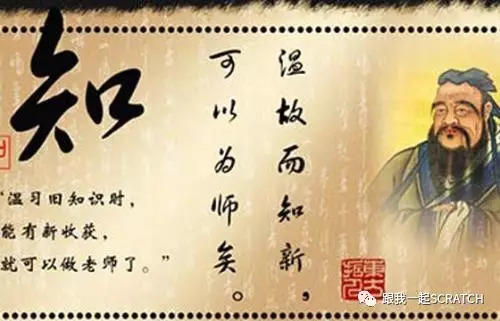 知
温故而知新，
可以为师矣。
“温习旧知识时，
能有新收获，
就可以做老师了。”
跟我一起SCRATCH